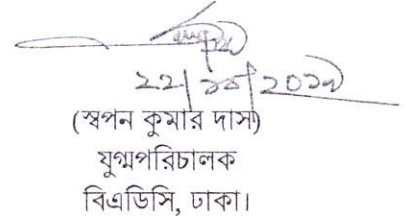 ২২/১০/২০১৯
(স্বপন কুমার দাস)
যুগ্মপরিচালক
বিএডিসি, ঢাকা।